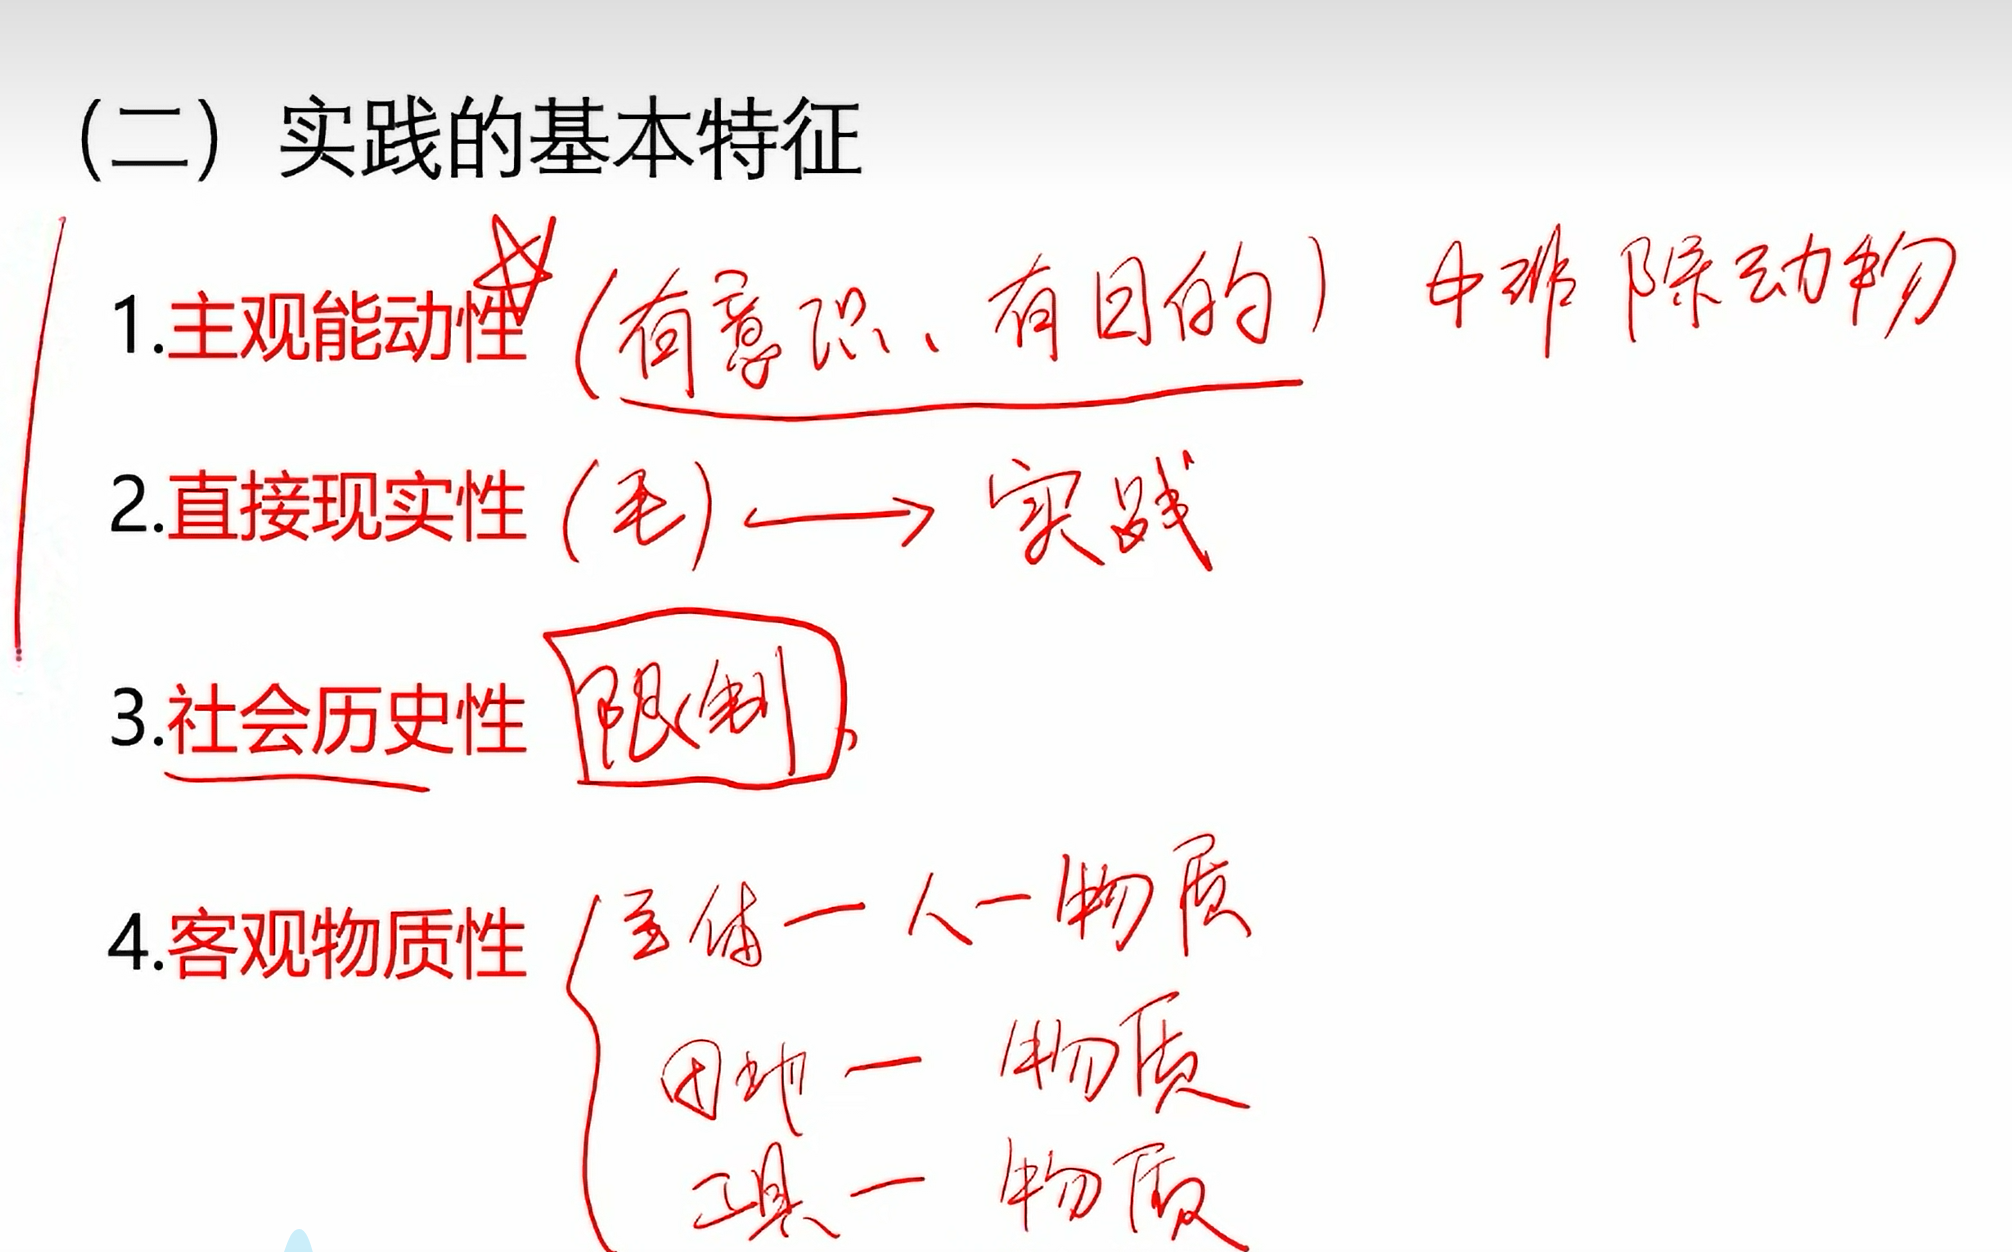 （二）实践的基本特征
1.主观能动性（有意识、有目的） 排除动物
2.直接现实性（毛）⟷ 实践
3.社会历史性 限制
4.客观物质性 主体一人一物质
田地一 物质
工具一 物质